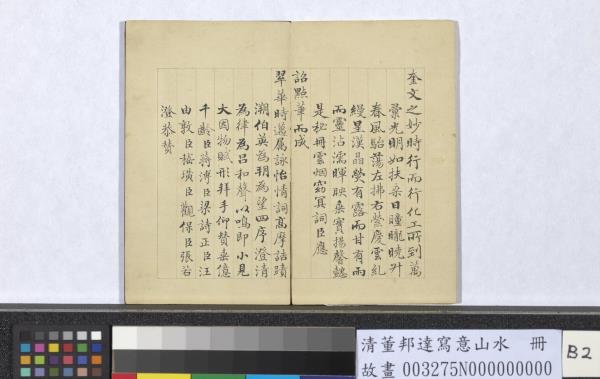 奎文之妙時行而行化工所到萬
彙光明如扶桑日曈曨曉升
春風駘蕩左拂右縈慶雲糺
縵星漢晶熒有露而甘有雨
而靈沾濡暉映桑實揚馨懿
是秘冊雲烟窈冥詞臣應
詔點筆而成
翠華時邁屬詠怡情詞高摩詰蹟
溯伯英為朔為望四序澄清
為律為呂和聲以鳴即小見
大因物賦形拜手仰贊垂億
千齡臣蔣溥臣梁詩正臣汪
由敦臣嵇璜臣觀保臣張若
澄恭贊
清董邦達寫意山水 冊
故畫 003275N000000000
B2